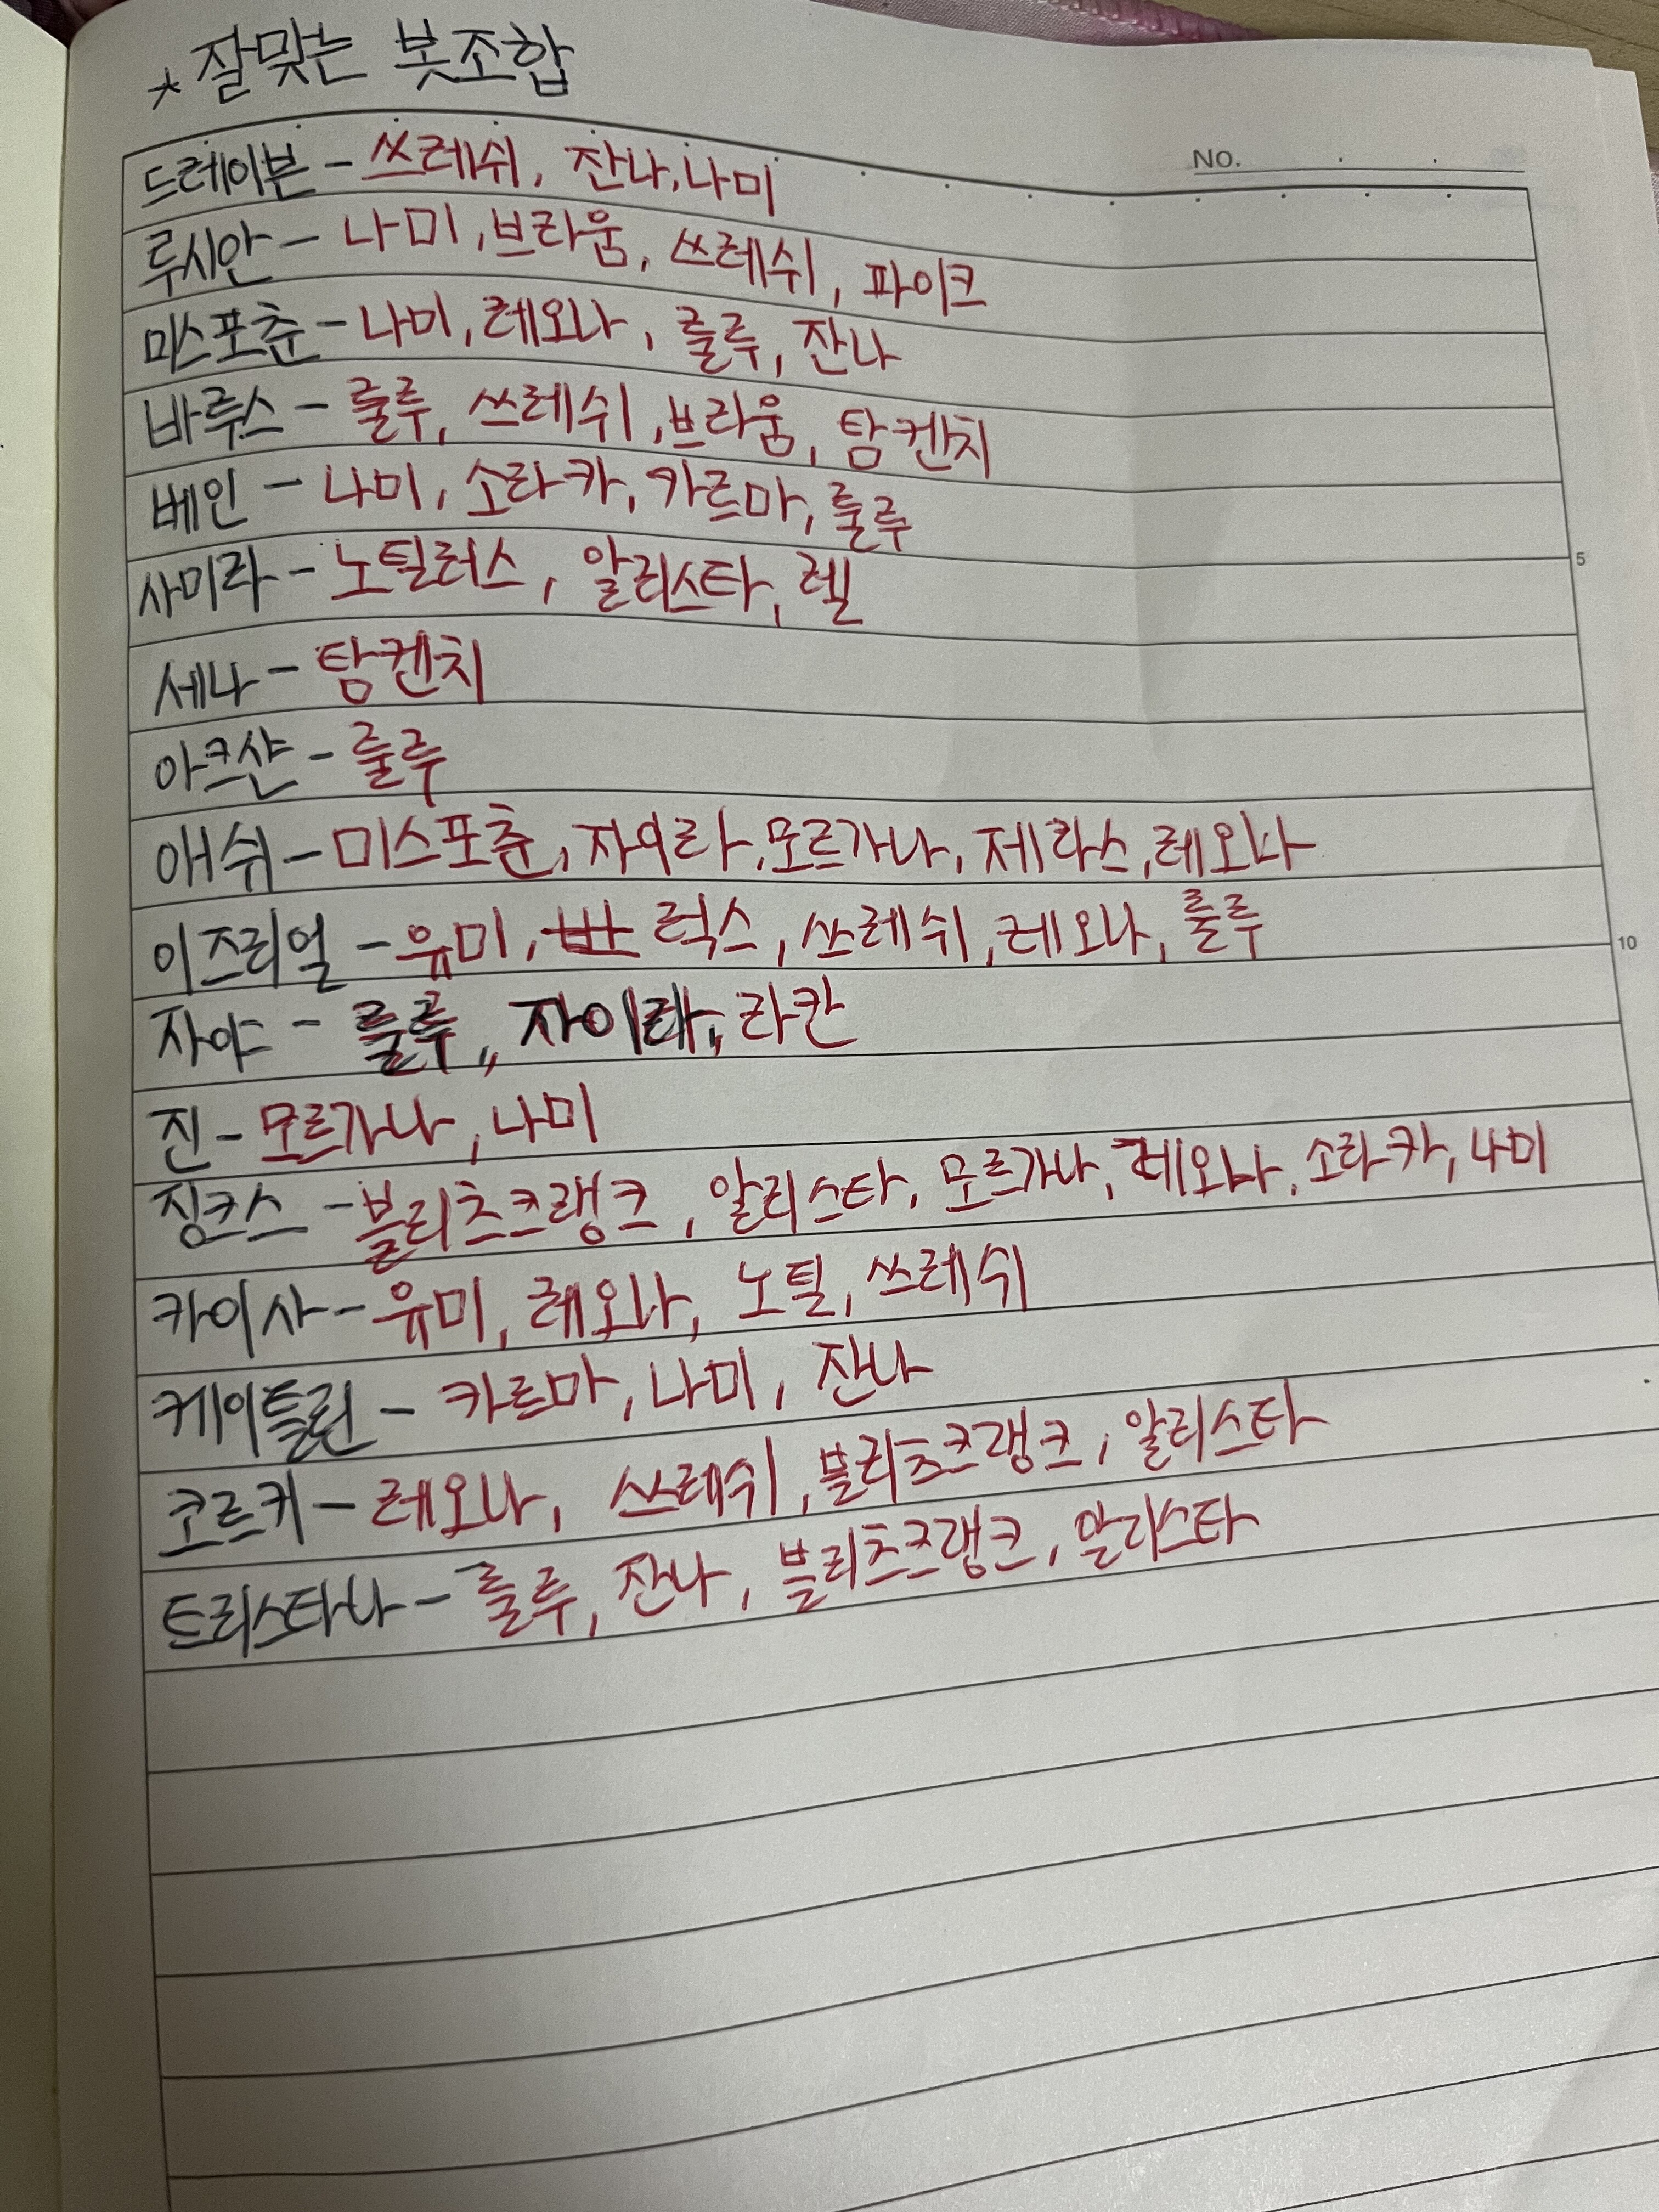 * 잘맞는 봇조합
NO.
드레이븐 - 쓰레쉬, 잔나, 나미
루시안 - 나미, 브라움, 쓰레쉬, 파이크
미스포춘 - 나미, 레오나, 룰루, 잔나
바루스 - 룰루, 쓰레쉬, 브라움, 탐켄치
베인 - 나미, 소라카, 카르마, 룰루
사미라 - 노틸러스, 알리스타, 렐
5
세나 - 탐켄치
아크샨 - 룰루
애쉬 - 미스포춘, 자이라, 모르가나, 제라스, 레오나
이즈리얼 - 유미, 럭스, 쓰레쉬, 레오나, 룰루
10
자야 - 룰루, 자이라, 라칸
진 - 모르가나, 나미
징크스 - 블리츠크랭크, 알리스타, 모르가나, 레오나, 소라카, 나미
카이사 - 유미, 레오나, 노틸, 쓰레쉬
케이틀린 - 카르마, 나미, 잔나
코르키 - 레오나, 쓰레쉬, 블리츠크랭크, 알리스타
트리스타나 - 룰루, 잔나, 블리츠크랭크, 알리스타